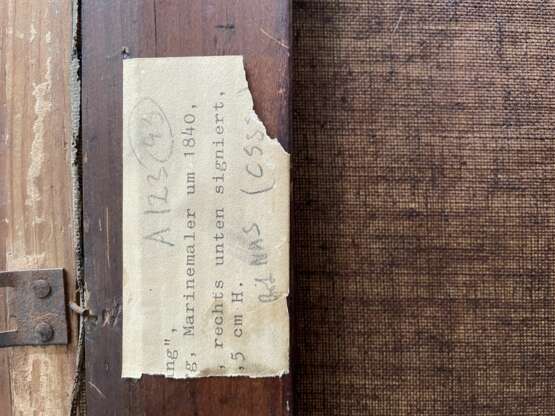 A123 93
ng",
g, Marinemaler um 1840,
, rechts unten signiert,
,5 cm H.